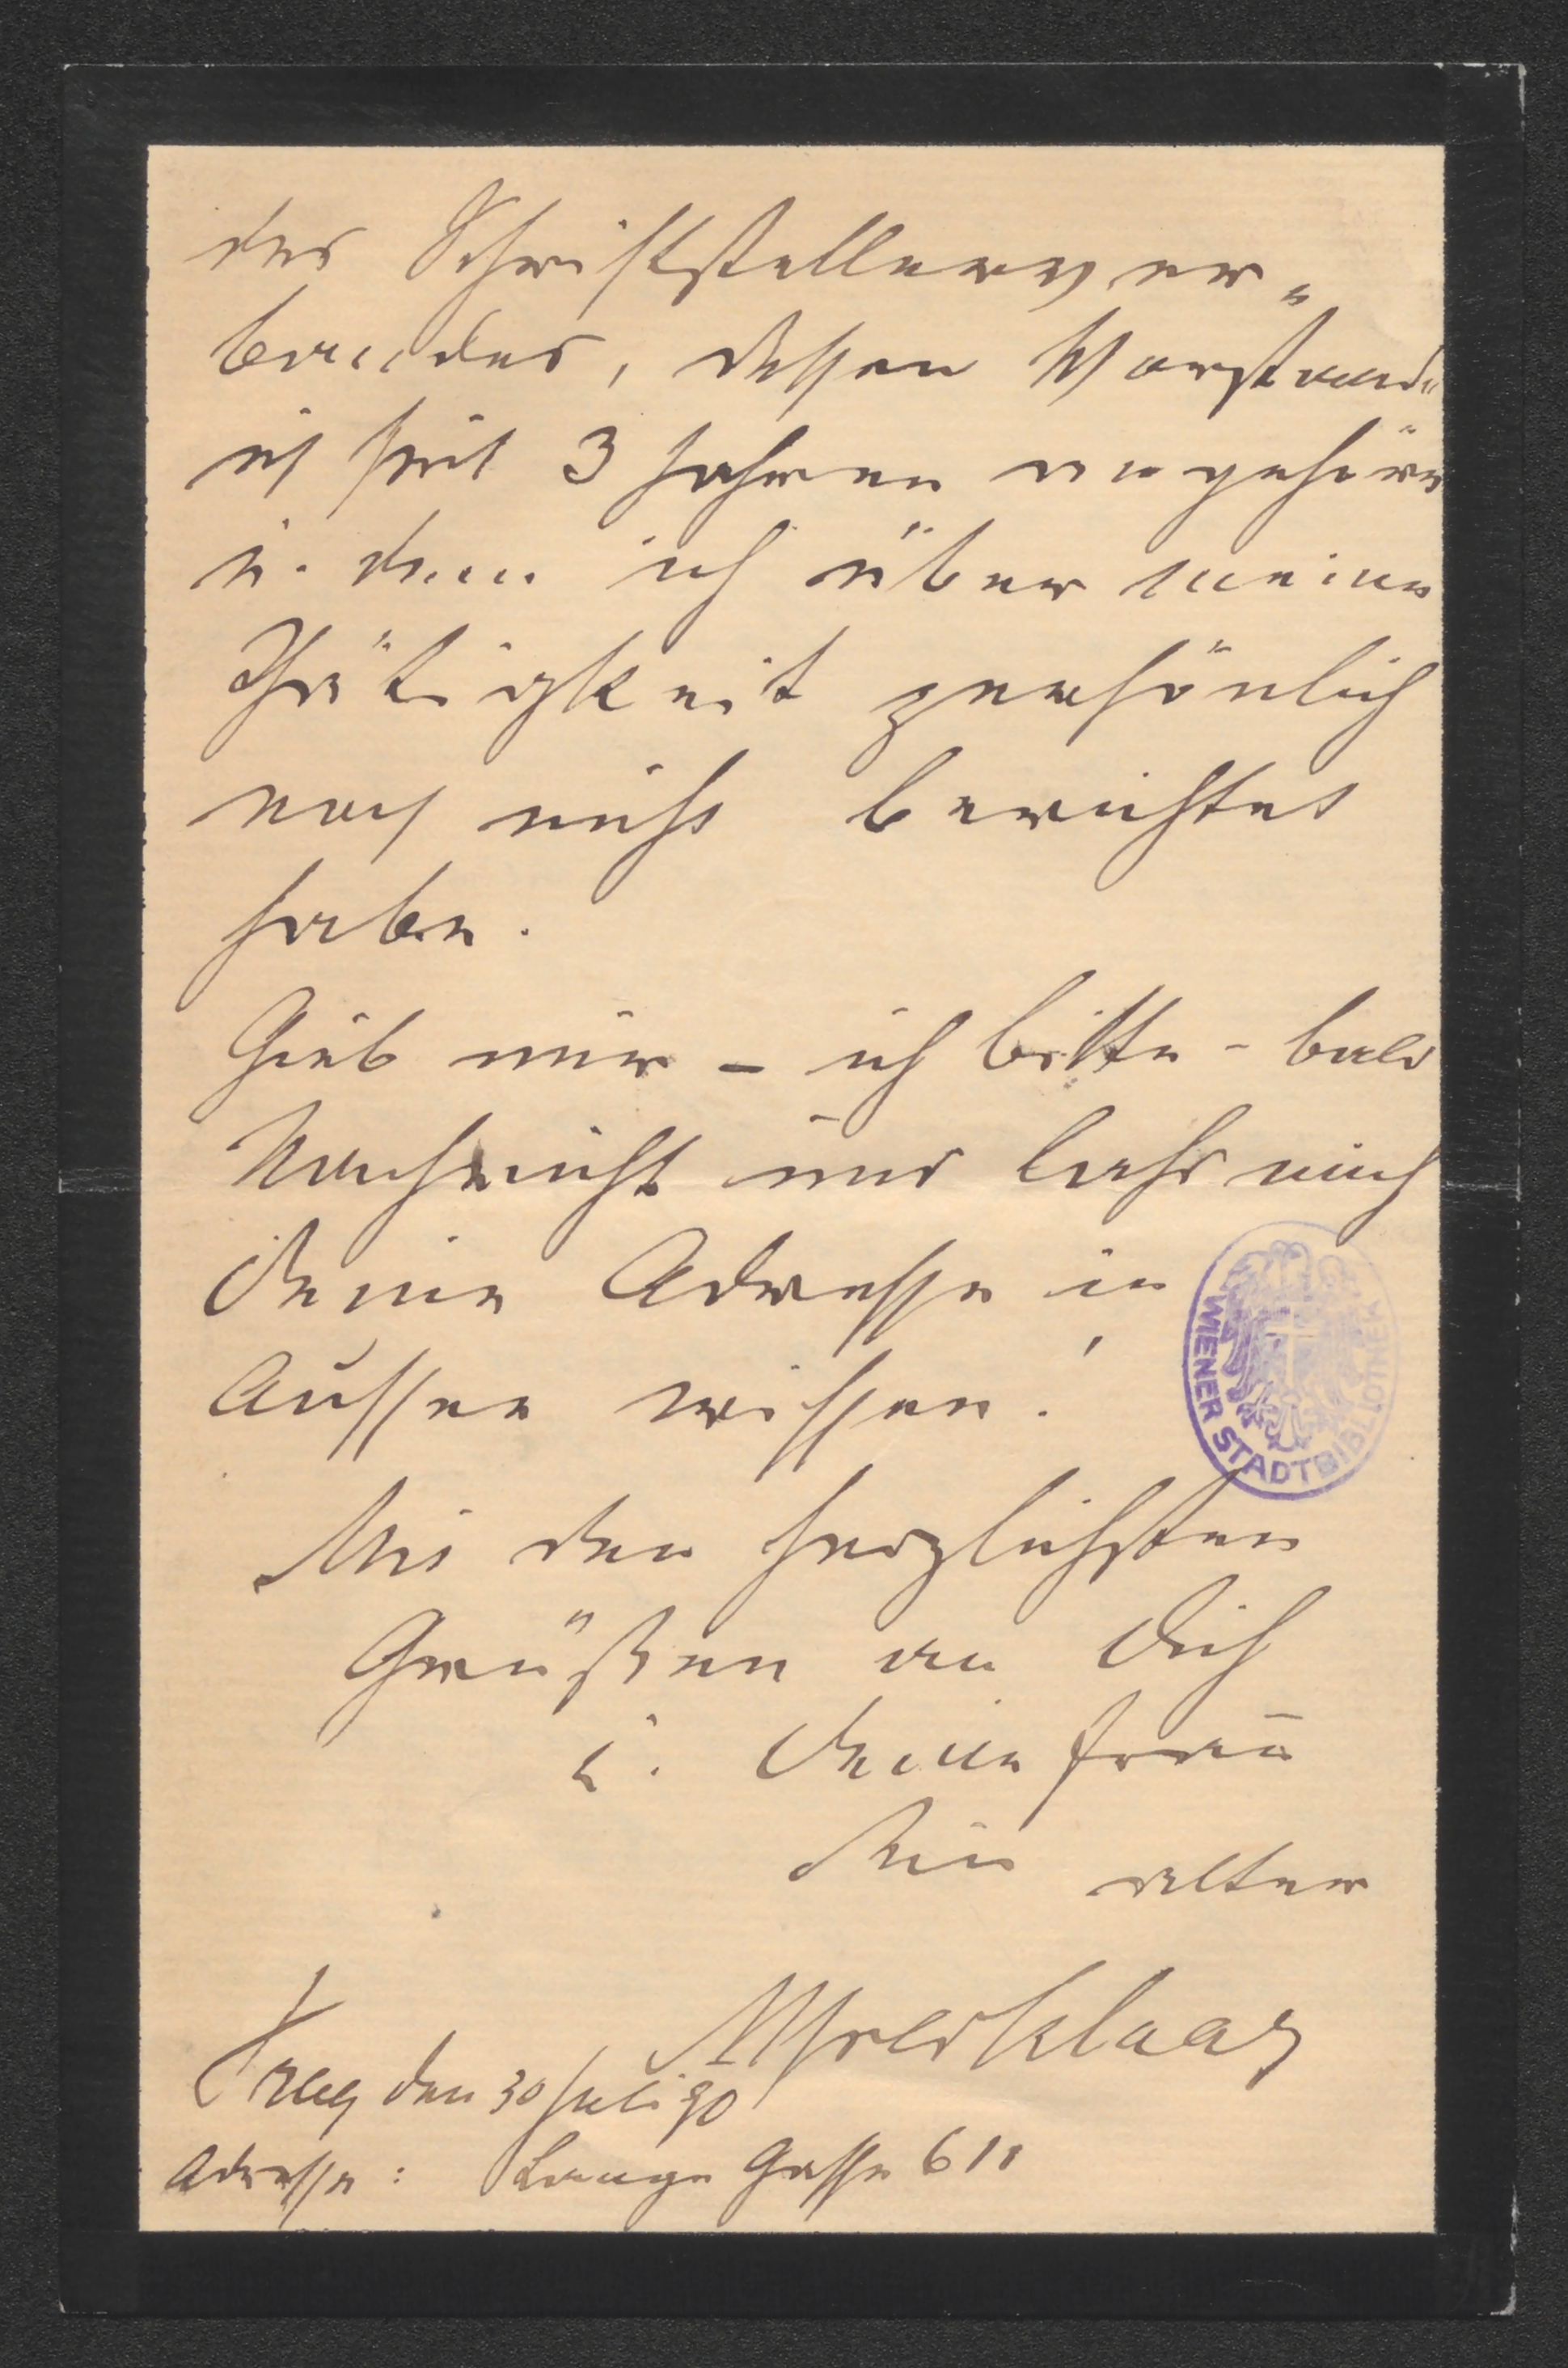 des Schriftstellerver„
bandes, dessen Vorstand„
ich seit 3 Jahren angehöre
u. dem ich über meine
Thätigkeit persönlich
noch nicht berichtet
habe.
Gieb mir – ich bitte – bald
Nachricht und laß mich
Deine Adresse in
Aussee wissen!
WIENER STADTBIBLIOTHEK
Mit den herzlichsten
Grüßen an Dich
u. Deine Frau
Dein alter
Alfred Klaar
Prag den 30 Juli 90
Adresse: Lange Gasse 611